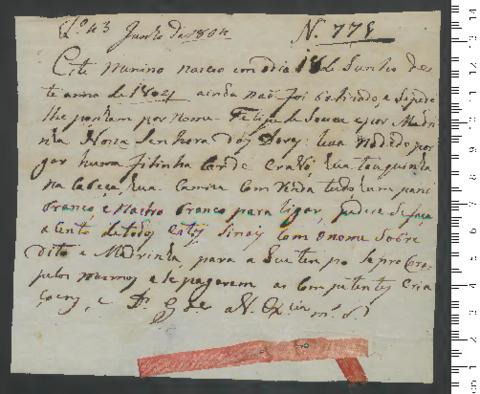 Lº 43 Junho de 1804 N. 779
Este minino naceo em o dia 18 de Junho des
te anno de 1804 ainda não foi baticado, e se pede
lhe ponham por nome Felipe de Souza e por Madri
nha Nossa Senhora das Dores: leva no dedo pole
gar huma fitinha cor de cravo, hua touquinha
na cabeça, hua camiza com renda tudo hum pano
branco, e nastro branco para ligar, pedece se faça
acento de todos estes sinais com o nome sobre
dito e Madrinha, para a seu tempo se procurar
pelos mesmos e se pagarem as competentes cria
çoens, e Ds. g.de a V. Ex.cia m.s a.s